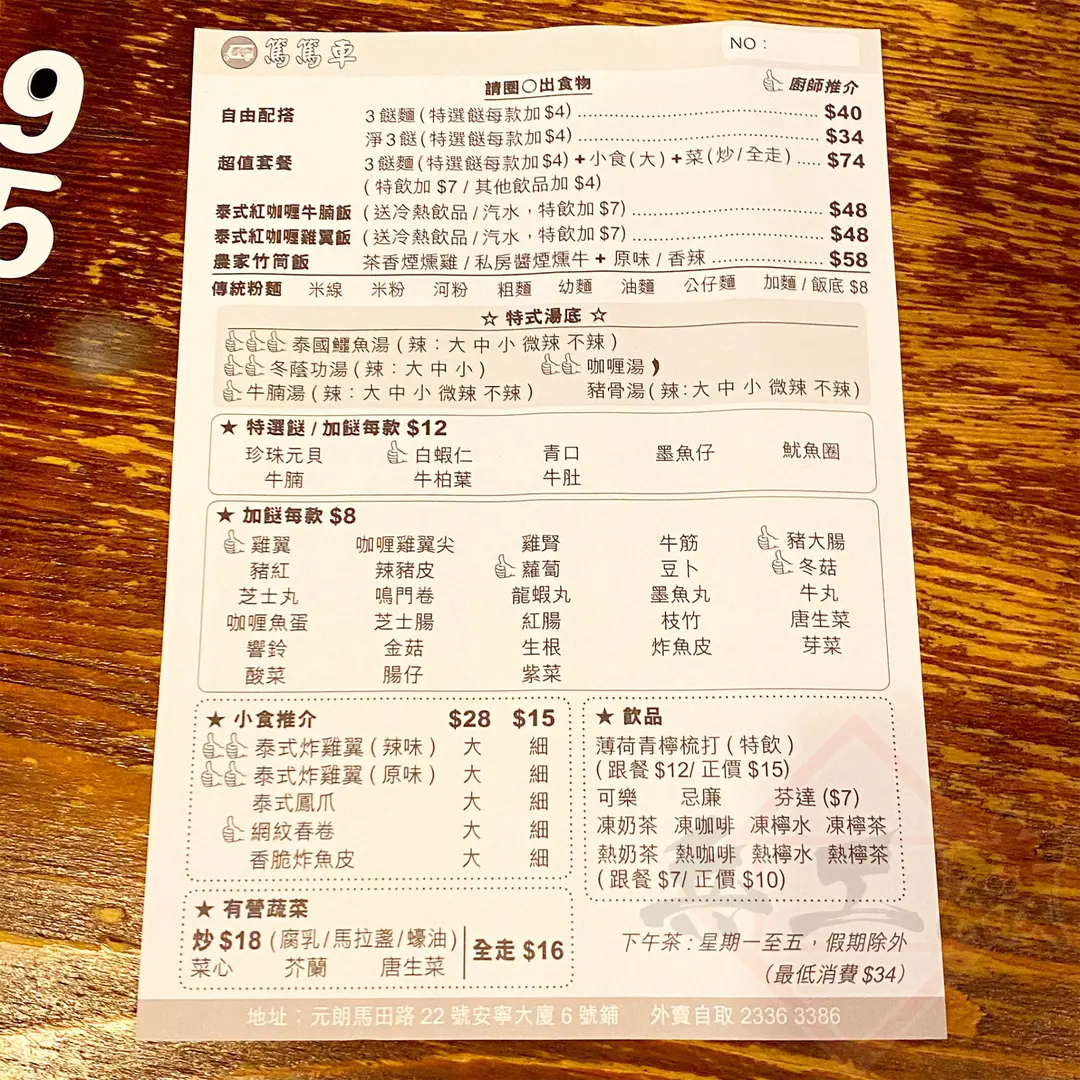 9
5
篤篤車
NO：
請圈〇出食物
廚師推介
自由配搭 3餸麵(特選餸每款加$4) $40
淨3餸(特選餸每款加$4) $34
超值套餐 3餸麵(特選餸每款加$4)+小食(大)+菜(炒/全走) $74
(特飲加 $7 / 其他飲品加 $4)
泰式紅咖喱牛腩飯 (送冷熱飲品/汽水，特飲加 $7) $48
泰式紅咖喱雞翼飯 (送冷熱飲品/汽水，特飲加 $7) $48
農家竹筒飯 茶香煙燻雞/私房醬煙燻牛+原味/香辣 $58
傳統粉麵 米線 米粉 河粉 粗麵 幼麵 油麵 公仔麵 加麵/飯底 $8
☆ 特式湯底 ☆
泰國鱷魚湯(辣：大 中 小 微辣 不辣)
冬蔭功湯(辣：大 中 小) 咖喱湯
牛腩湯(辣：大 中 小 微辣 不辣) 豬骨湯(辣：大 中 小 微辣 不辣)
★ 特選餸/加餸每款 $12
珍珠元貝 白蝦仁 青口 墨魚仔 魷魚圈
牛腩 牛柏葉 牛肚
★ 加餸每款 $8
雞翼 咖喱雞翼尖 雞腎 牛筋 豬大腸
豬紅 辣豬皮 蘿蔔 豆卜 冬菇
芝士丸 鳴門卷 龍蝦丸 墨魚丸 牛丸
咖喱魚蛋 芝士腸 紅腸 枝竹 唐生菜
響鈴 金菇 生根 炸魚皮 芽菜
酸菜 腸仔 紫菜
★ 小食推介 $28 $15
泰式炸雞翼(辣味) 大 細
泰式炸雞翼(原味) 大 細
泰式鳳爪 大 細
網紋春卷 大 細
香脆炸魚皮 大 細
★ 飲品
薄荷青檸梳打(特飲)
(跟餐 $12/ 正價 $15)
可樂 忌廉 芬達 ($7)
凍奶茶 凍咖啡 凍檸水 凍檸茶
熱奶茶 熱咖啡 熱檸水 熱檸茶
(跟餐 $7/ 正價 $10)
★ 有營蔬菜
炒 $18 (腐乳/馬拉盞/蠔油) 全走 $16
菜心 芥蘭 唐生菜
下午茶：星期一至五，假期除外
(最低消費 $34)
地址：元朗馬田路 22 號安寧大廈 6 號鋪 外賣自取 2336 3386